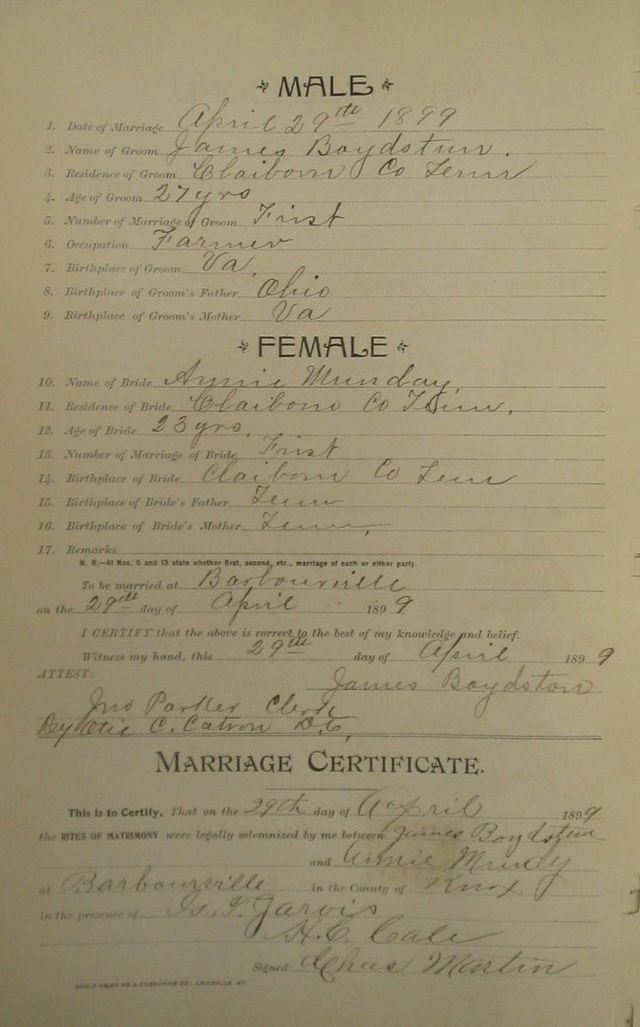 MALE
1. Date of Marriage April 29th 1899
2. Name of Groom James Boydstun.
3. Residence of Groom Claiborn Co Tenn
4. Age of Groom 27 yrs
5. Number of Marriage of Groom First
6. Occupation Farmer
7. Birthplace of Groom Va.
8. Birthplace of Groom's Father Ohio
9. Birthplace of Groom's Mother Va
FEMALE
10. Name of Bride Annie Munday.
11. Residence of Bride Claiborn Co Tenn.
12. Age of Bride 23 yrs.
13. Number of Marriage of Bride First
14. Birthplace of Bride Claiborn Co Tenn
15. Birthplace of Bride's Father Tenn
16. Birthplace of Bride's Mother Tenn,
17. Remarks
N. B.—At Nos. 5 and 13 state whether first, second, etc., marriage of each or either party.
To be married at Barbourville
on the 29th day of April 1899
I CERTIFY that the above is correct to the best of my knowledge and belief.
Witness my hand, this 29th day of April 1899
ATTEST:
James Boydston
Jno Parker Clerk
By C. Catron D.C,
MARRIAGE CERTIFICATE.
This is to Certify, That on the 29th day of April 1899
the RITES OF MATRIMONY were legally solemnized by me between James Boydstun
and Annie Mundy
at Barbourville in the County of Knox
in the presence of Jarvis
H. C. Cale
Signed: Chas Martin